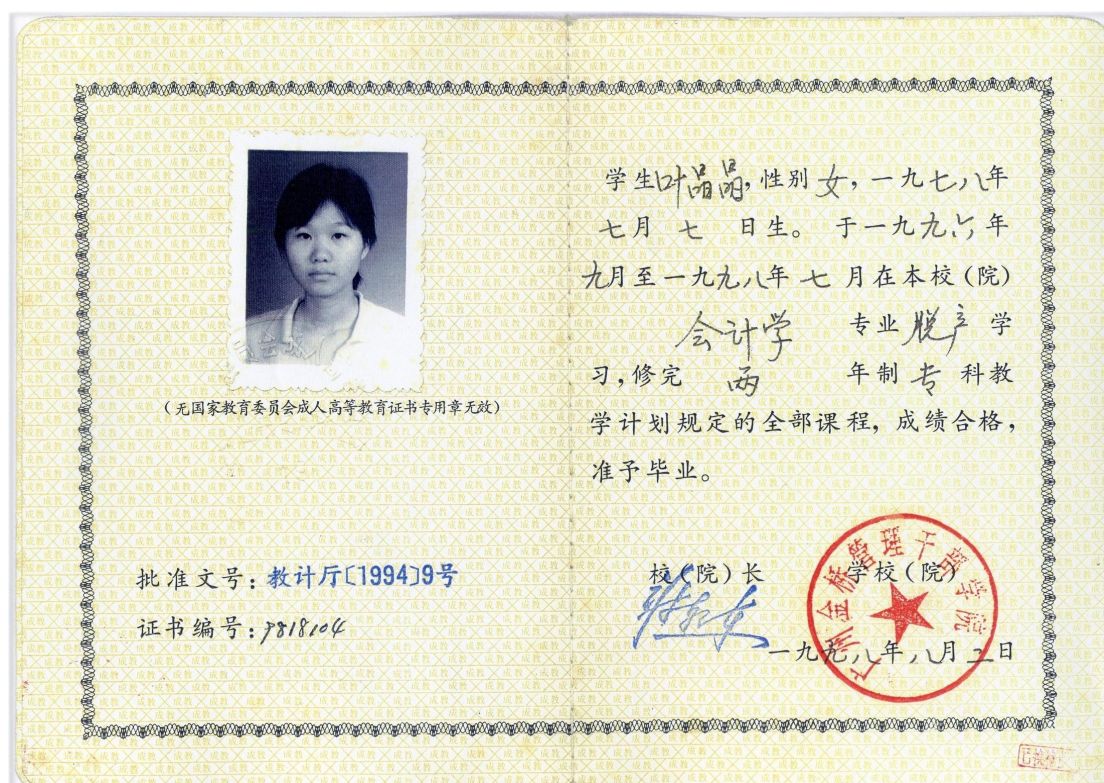 (无国家教育委员会成人高等教育证书专用章无效)
批准文号:教计厅〔1994〕9号
证书编号:9818104
学生叶晶晶,性别女,一九七八年
七月七日生。于一九九六年
九月至一九九八年七月在本校(院)
会计学专业脱产学
习,修完两年制专科教
学计划规定的全部课程,成绩合格,
准予毕业。
校(院)长 学校(院)
广州金桥管理干部学院
一九九八年八月二日